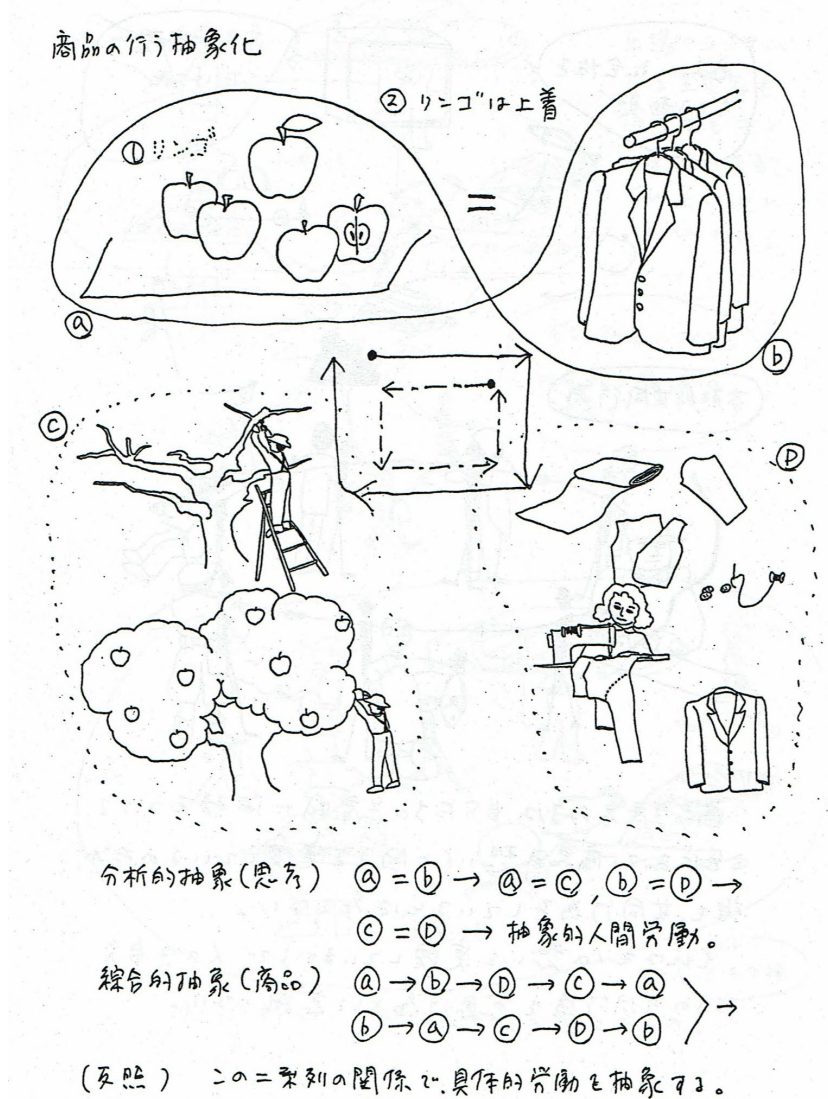 商品の行う抽象化
② リンゴは上着
① リンゴ
=
ⓐ
ⓑ
ⓒ
Ⓓ
分析的抽象(思考) ⓐ = ⓑ → ⓐ = ⓒ, ⓑ = Ⓓ →
ⓒ = Ⓓ → 抽象的人間労働。
綜合的抽象(商品) ⓐ → ⓑ → Ⓓ → ⓒ → ⓐ
ⓑ → ⓐ → ⓒ → Ⓓ → ⓑ →
(反照) この二系列の関係で、具体的労働を抽象する。